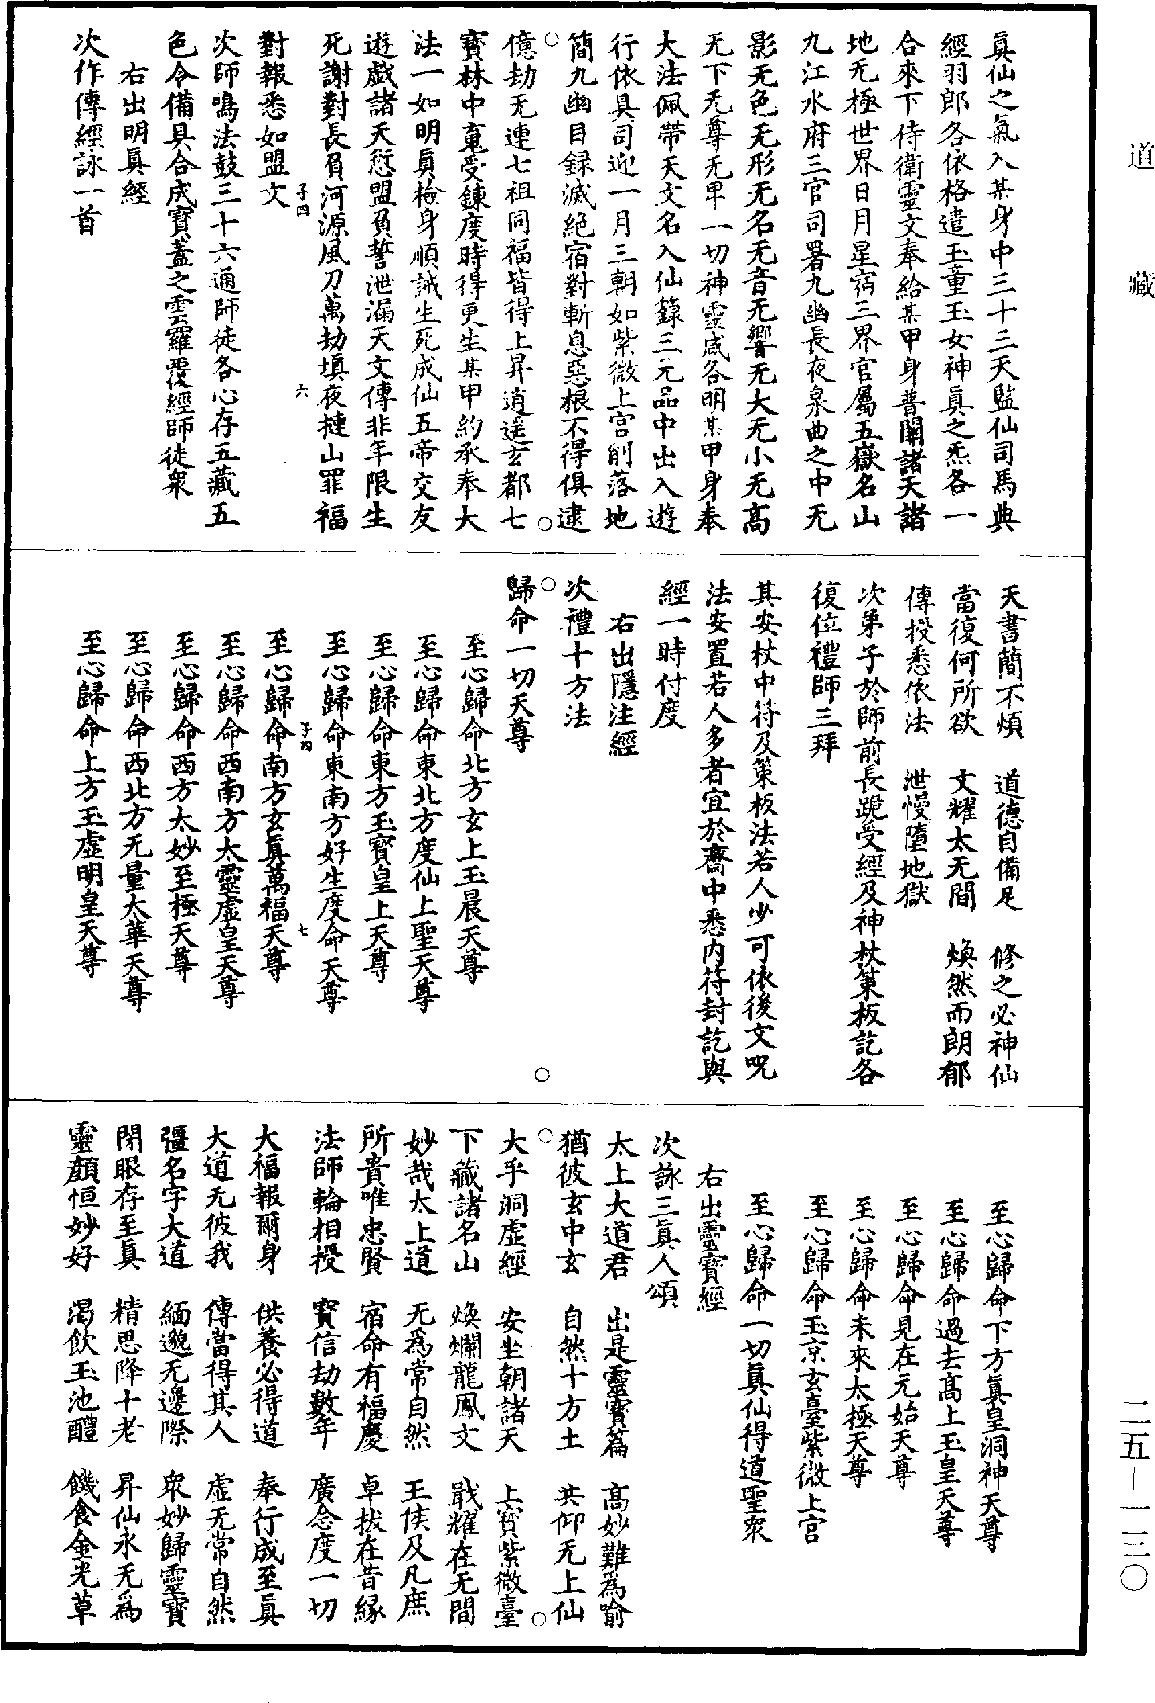 道藏
真仙之氣入某身中三十三天監仙司馬典
經羽郎各依格遣玉童玉女神真之炁各一
合來下侍衛靈文奉給某甲身普關諸天諸
地无極世界日月星宿三界官屬五嶽名山
九江水府三官司署九幽長夜泉曲之中无
影无色无形无名无音无響无大无小无高
无下无尊无卑一切神靈咸各明某甲身奉
大法佩帶天文名入仙籙三元品中出入遊
行依具司迎一月三朝如紫微上宮削落地
簡九幽目録滅絶宿對斬息惡根不得俱逮
億劫无連七祖同福皆得上昇逍遥玄都七
寶林中㝠受鍊度時得更生某甲約承奉大
法一如明真檢身順誡生死成仙五帝交友
遊戲諸天愆盟負誓泄漏天文傳非年限生
死謝對長負河源風刀萬劫填夜摙山罪福
對報悉如盟文
子四 六
次師鳴法鼓三十六通師徒各心存五藏五
色令備具合成寶蓋之雲羅覆經師徒衆
右出明真經
次作傳經詠一首
天書簡不煩 道德自備足 修之必神仙
當復何所欲 文耀太无間 煥然而朗郁
傳授悉依法 泄慢墮地獄
次弟子於師前長跪受經及神杖策板訖各
復位禮師三拜
其安杖中符及策板法若人少可依後文呪
法安置若人多者宜於齋中悉内符封訖與
經一時付度
右出隱注經
次禮十方法
歸命一切天尊
至心歸命北方玄上玉晨天尊
至心歸命東北方度仙上聖天尊
至心歸命東方玉寶皇上天尊
至心歸命東南方好生度命天尊
子四 七
至心歸命南方玄真萬福天尊
至心歸命西南方太靈虛皇天尊
至心歸命西方太妙至極天尊
至心歸命西北方无量太華天尊
至心歸命上方玉虛明皇天尊
至心歸命下方真皇洞神天尊
至心歸命過去高上玉皇天尊
至心歸命見在元始天尊
至心歸命未來太極天尊
至心歸命玉京玄臺紫微上宮
至心歸命一切真仙得道聖衆
右出靈寶經
次詠三真人頌
太上大道君 出是靈寶篇 高妙難為喻
猶彼玄中玄 自然十方土 共仰无上仙
大乎洞虛經 安坐朝諸天 上寶紫微臺
下藏諸名山 煥爛龍鳳文 戢耀在无間
妙哉太上道 无為常自然 王侯及凡庶
所貴唯忠賢 宿命有福慶 卓拔在昔緣
法師輪相授 寶信劫數年 廣念度一切
大福報爾身 供養必得道 奉行成至真
大道无彼我 傳當得其人 虛无常自然
彊名字大道 緬邈无邊際 衆妙歸靈寶
閉眼存至真 精思降十老 昇仙永无為
靈顏恒妙好 渴飲玉池醴 饑食金光草
二五—一三〇